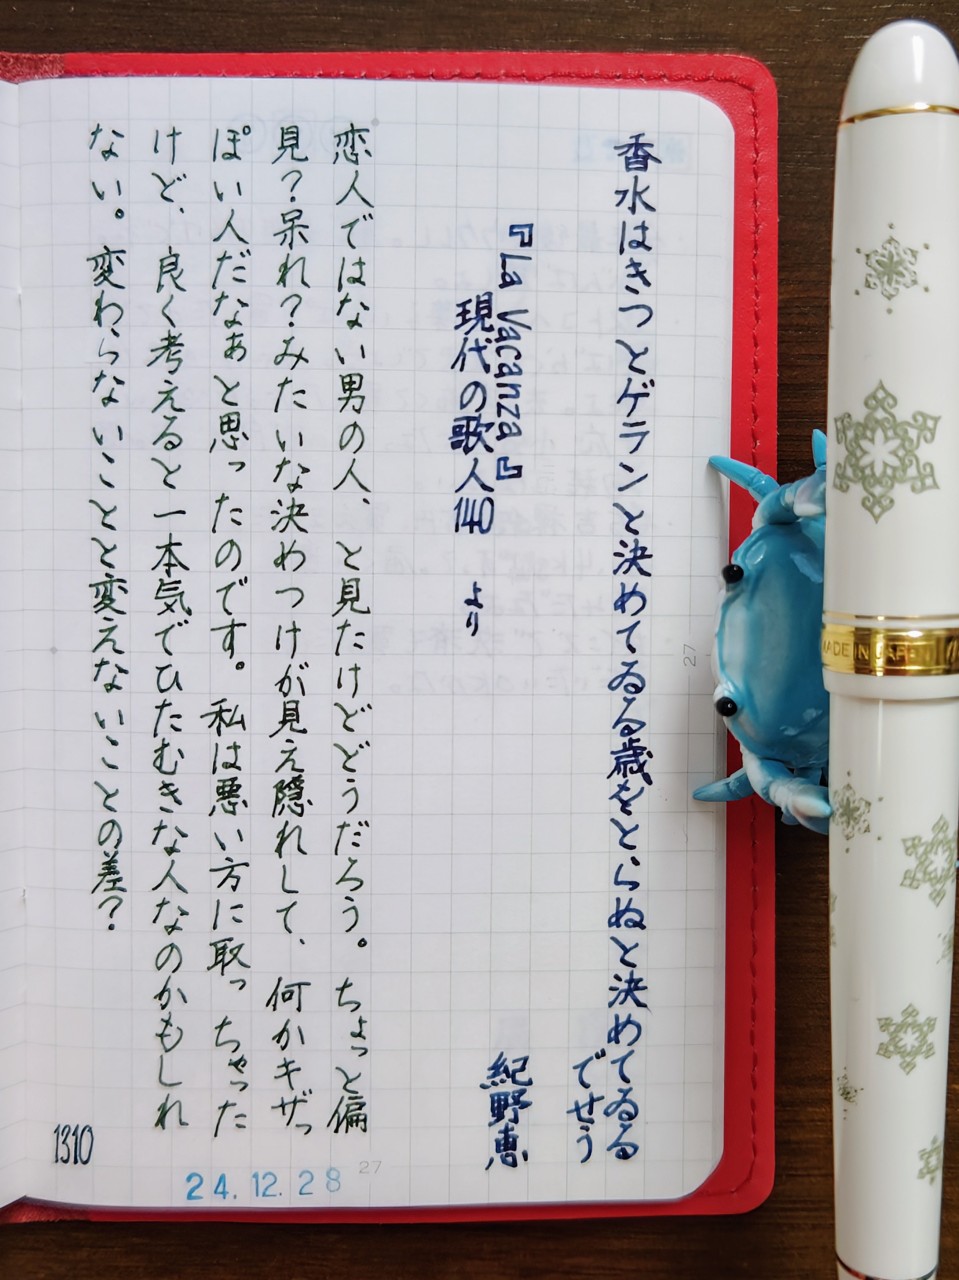 香水はきつとゲランと決めてゐる歳をとらぬと決めてゐる
でせう
『La Vacanza』
現代の歌人140 より
紀野恵
恋人ではない男の人、と見たけどどうだろう。ちょっと偏
見?呆れ?みたいな決めつけが見え隠れして、何かキザっ
ぽい人だなぁと思ったのです。私は悪い方に取っちゃった
けど、良く考えると一本気でひたむきな人なのかもしれ
ない。変わらないことと変えないことの差?
1310
24.12.28
27
27
MADE IN JAPAN